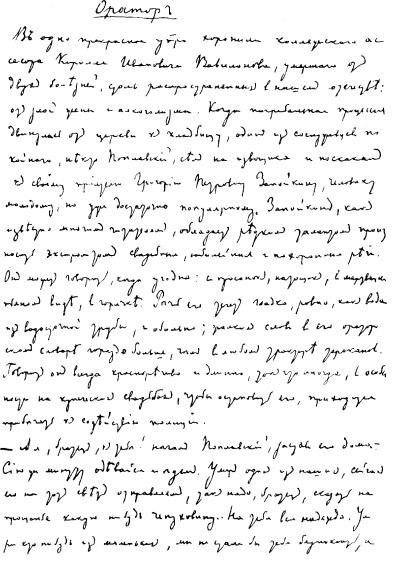 Ораторъ
Въ одно прекрасное утро хоронили коллежскаго ас-
сесора Кирилла Ивановича Вавилонова, умершаго отъ
двухъ болѣзней, столь распространенныхъ въ нашемъ отечествѣ:
отъ злой жены и алкоголизма. Когда погребальная процессія
двинулась отъ церкви къ кладбищу, одинъ изъ сослуживцевъ по-
койнаго, нѣкто Поплавскій, сѣлъ на извозчика и поскакалъ
къ своему пріятелю Григорію Петровичу Запойкину, человѣку
молодому, но уже достаточно популярному. Запойкинъ, какъ
извѣстно многимъ читателямъ, обладаетъ рѣдкимъ талантомъ произ-
носить экспромптомъ свадебныя, юбилейныя и похоронныя рѣчи.
Онъ можетъ говорить, когда угодно: съ просонокъ, натощакъ, въ мертвецки
пьяномъ видѣ, въ горячкѣ. Рѣчь его течетъ гладко, ровно, какъ вода
изъ водосточной трубы, и обильно; жалкихъ словъ въ его оратор-
скомъ словарѣ гораздо больше, чѣмъ въ любомъ трактирѣ таракановъ.
Говоритъ онъ всегда краснорѣчиво и длинно, такъ что иногда, въ особен-
ности на купеческихъ свадьбахъ, чтобы остановить его, приходится
прибѣгать къ содѣйствію полиціи.
— А я, братецъ, къ тебѣ! началъ Поплавскій, заставъ его дома.—
Сію же минуту одѣвайся и ѣдемъ. Умеръ одинъ изъ нашихъ, сейчасъ
его на тотъ свѣтъ отправляемъ, такъ надо, братецъ, сказать на
прощанье какую-нибудь чепуховину.. На тебя вся надежда. Ум-
ри кто-нибудь изъ маленькихъ, мы не стали бы тебя безпокоить, а